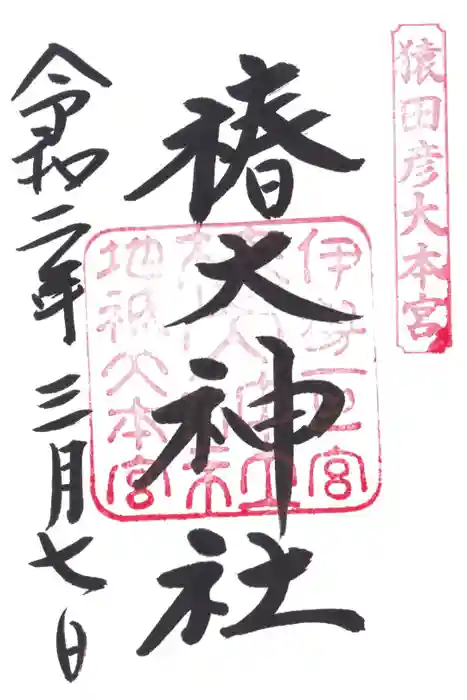 猿田彦大本宮
椿大神社
伊勢一之宮
椿大神社
地祇大本宮
令和二年三月七日